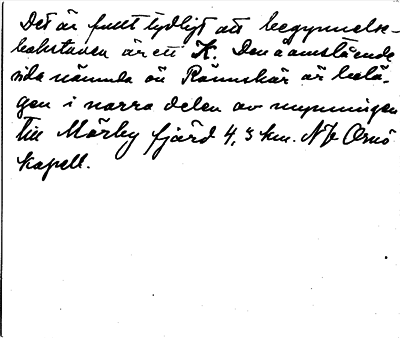 Det är fullt tydligt att begynnelse-
bokstaven är ett K. Den å omstående
sida nämnda ön Rönnskär är belä-
gen i norra delen av mynningen
till Mörby fjärd 4,5 km. N Ornö
kapell.